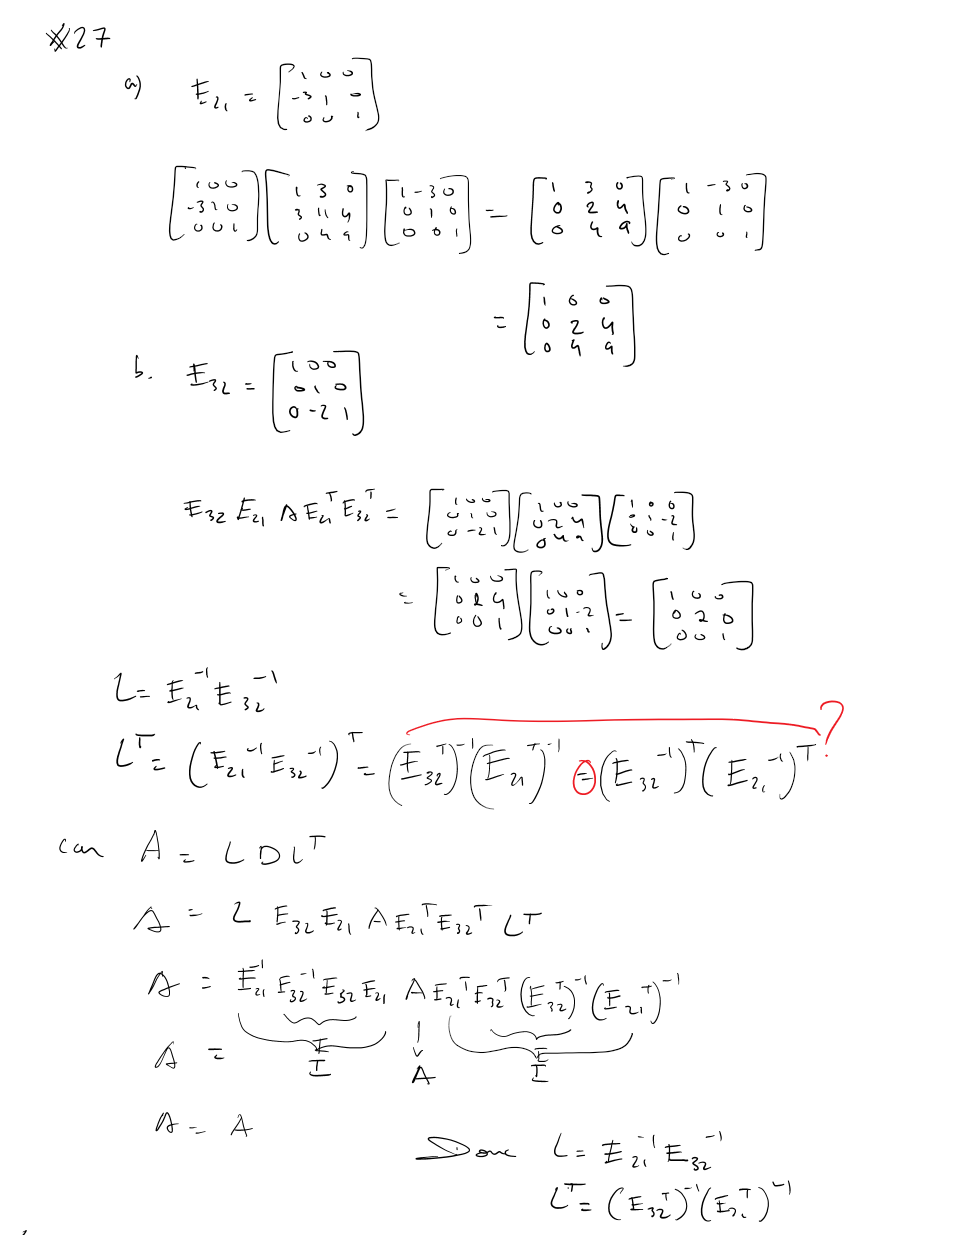 #27
a) E₂₁ = [1 0 0; -3 1 0; 0 0 1]
[1 0 0; -3 1 0; 0 0 1] [1 3 0; 3 11 4; 0 4 9] [1 -3 0; 0 1 0; 0 0 1] = [1 3 0; 0 2 4; 0 4 9] [1 -3 0; 0 1 0; 0 0 1]
= [1 0 0; 0 2 4; 0 4 9]
b. E₃₂ = [1 0 0; 0 1 0; 0 -2 1]
E₃₂ E₂₁ A E₂₁ᵀ E₃₂ᵀ = [1 0 0; 0 1 0; 0 -2 1] [1 0 0; 0 2 4; 0 4 9] [1 0 0; 0 1 -2; 0 0 1]
= [1 0 0; 0 2 4; 0 0 1] [1 0 0; 0 1 -2; 0 0 1] = [1 0 0; 0 2 0; 0 0 1]
L = E₂₁⁻¹ E₃₂⁻¹
?
Lᵀ = (E₂₁⁻¹ E₃₂⁻¹)ᵀ = (E₃₂ᵀ)⁻¹ (E₂₁ᵀ)⁻¹ = (E₃₂⁻¹)ᵀ (E₂₁⁻¹)ᵀ
car A = L D Lᵀ
A = L E₃₂ E₂₁ A E₂₁ᵀ E₃₂ᵀ Lᵀ
A = E₂₁⁻¹ E₃₂⁻¹ E₃₂ E₂₁ A E₂₁ᵀ E₃₂ᵀ (E₃₂ᵀ)⁻¹ (E₂₁ᵀ)⁻¹
A = I I
I A I
A = A
Donc L = E₂₁⁻¹ E₃₂⁻¹
Lᵀ = (E₃₂ᵀ)⁻¹ (E₂₁ᵀ)⁻¹